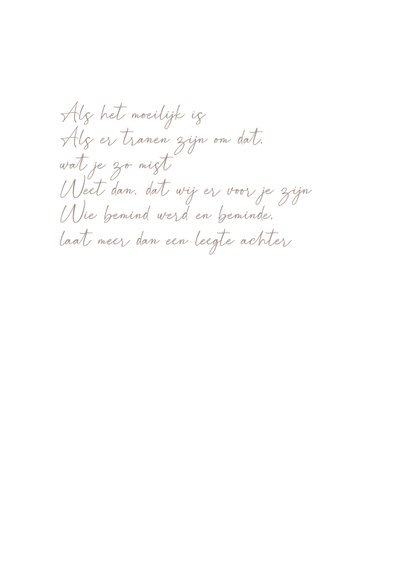 Als het moeilijk is
Als er tranen zijn om dat,
wat je zo mist
Weet dan, dat wij er voor je zijn
Wie bemind werd en beminde,
laat meer dan een leegte achter